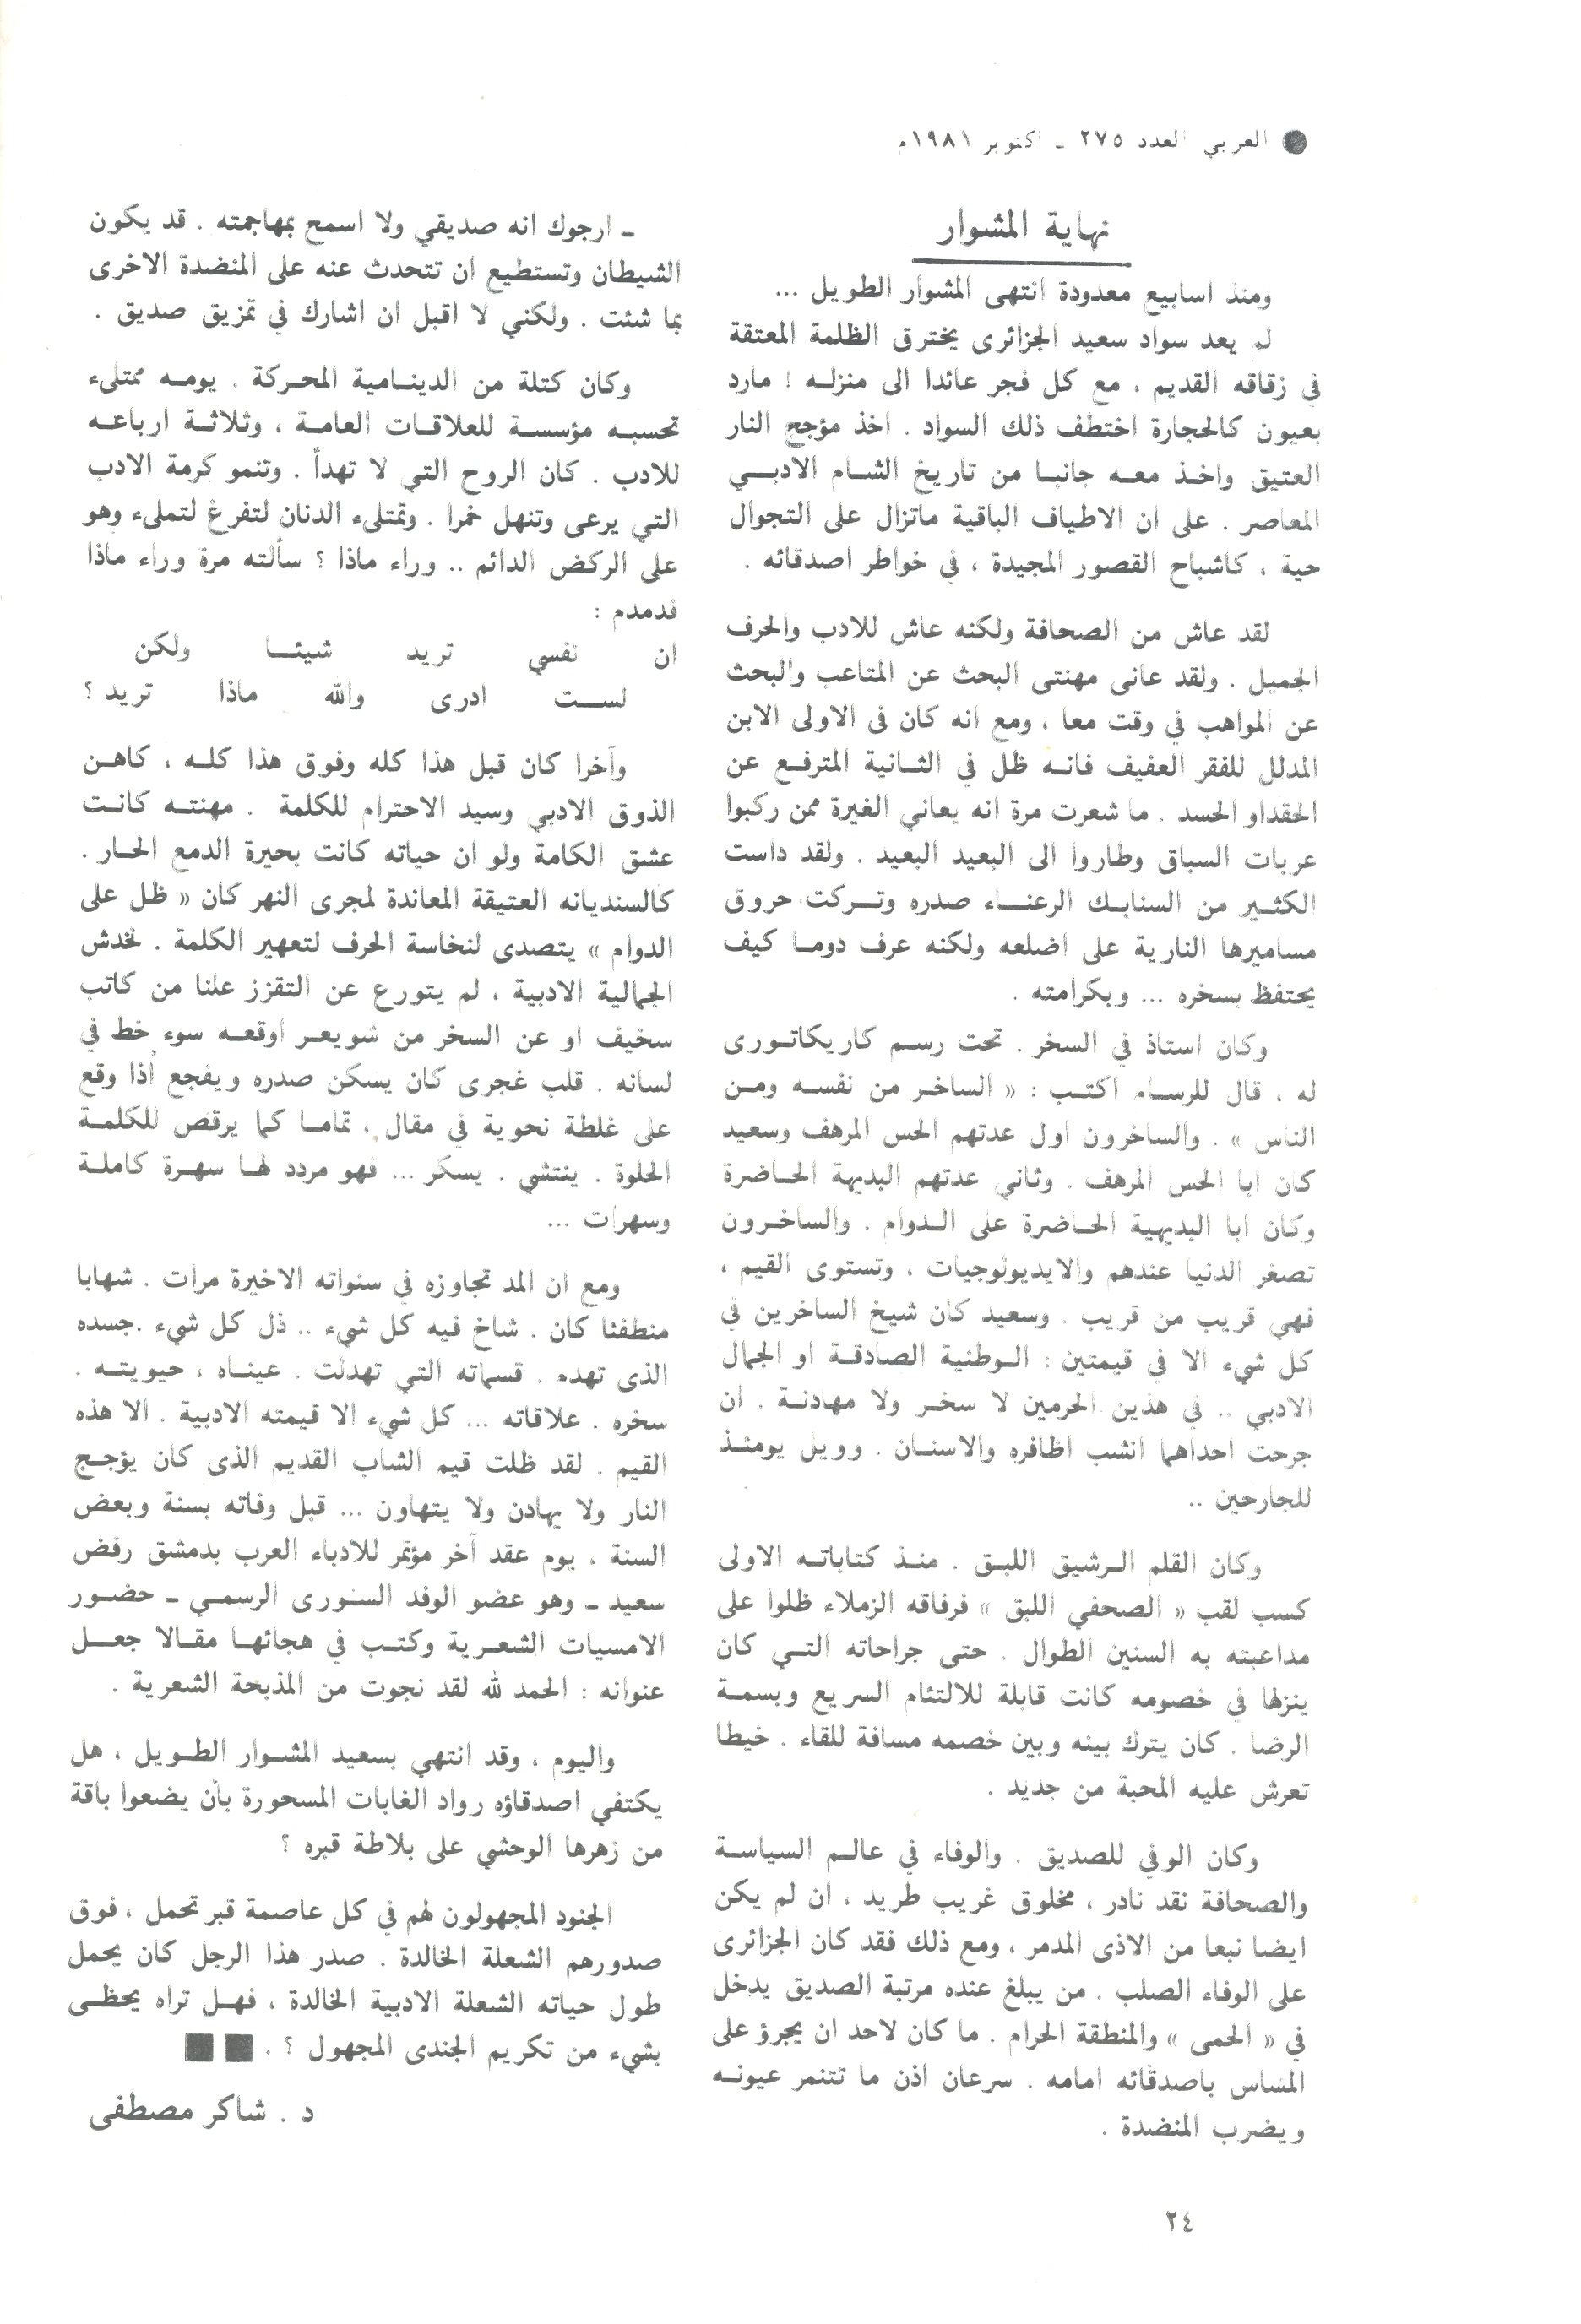 العربي العدد ٢٧٥ ـ اكتوبر ١٩٨١م
نهاية المشوار
ومنذ اسابيع معدودة انتهى المشوار الطويل ...
لم يعد سواد سعيد الجزائرى يخترق الظلمة المعتقة
في زقاقه القديم ، مع كل فجر عائدا الى منزله ! مارد
بعيون كالحجارة اختطف ذلك السواد . اخذ مؤجج النار
العتيق واخذ معه جانبا من تاريخ الشام الادبي
المعاصر . على ان الاطياف الباقية ماتزال على التجوال
حية ، كاشباح القصور المجيدة ، في خواطر اصدقائه .
لقد عاش من الصحافة ولكنه عاش للادب والحرف
الجميل . ولقد عانى مهنتى البحث عن المتاعب والبحث
عن المواهب في وقت معا ، ومع انه كان فى الاولى الابن
المدلل للفقر العفيف فانه ظل في الثانية المترفع عن
الحقداو الحسد . ما شعرت مرة انه يعاني الغيرة ممن ركبوا
عربات السباق وطاروا الى البعيد البعيد . ولقد داست
الكثير من السنابك الرعناء صدره وتركت حروق
مساميرها النارية على اضلعه ولكنه عرف دوما كيف
يحتفظ بسخره ... وبكرامته .
وكان استاذ في السخر . تحت رسم كاريكاتورى
له ، قال للرسام اكتب : « الساخر من نفسه ومن
الناس » . والساخرون اول عدتهم الحس المرهف وسعيد
كان ابا الحس المرهف . وثاني عدتهم البديهة الحاضرة
وكان ابا البديهية الحاضرة على الدوام . والساخرون
تصغر الدنيا عندهم والايديولوجيات ، وتستوى القيم ،
فهي قريب من قريب . وسعيد كان شيخ الساخرين في
كل شيء الا في قيمتين : الوطنية الصادقة او الجمال
الادبي .. في هذين الحرمين لا سخر ولا مهادنة . ان
جرحت احداهما انشب اظافره والاسنان . وويل يومئذ
للجارحين ..
وكان القلم الرشيق اللبق . منذ كتاباته الاولى
كسب لقب « الصحفي اللبق » فرفاقه الزملاء ظلوا على
مداعبته به السنين الطوال . حتى جراحاته التي كان
ينزلها في خصومه كانت قابلة للالتئام السريع وبسمة
الرضا . كان يترك بينه وبين خصمه مسافة للقاء . خيطا
تعرش عليه المحبة من جديد .
وكان الوفي للصديق . والوفاء في عالم السياسة
والصحافة نقد نادر ، مخلوق غريب طريد ، ان لم يكن
ايضا نبعا من الاذى المدمر ، ومع ذلك فقد كان الجزائرى
على الوفاء الصلب . من يبلغ عنده مرتبة الصديق يدخل
في « الحمى » والمنطقة الحرام . ما كان لاحد ان يجرؤ على
المساس باصدقائه امامه . سرعان اذن ما تتنمر عيونه
ويضرب المنضدة .
ـ ارجوك انه صديقي ولا اسمح بمهاجمته . قد يكون
الشيطان وتستطيع ان تتحدث عنه على المنضدة الاخرى
بما شئت . ولكني لا اقبل ان اشارك في تمزيق صديق .
وكان كتلة من الدينامية المحركة . يومه ممتلىء
تحسبه مؤسسة للعلاقات العامة ، وثلاثة ارباعه
للادب . كان الروح التي لا تهدأ . وتنمو كرمة الادب
التي يرعى وتنهل خمرا . وتمتلىء الدنان لتفرغ لتملىء وهو
على الركض الدائم .. وراء ماذا ؟ سألته مرة وراء ماذا
فدمدم :
ان نفسي تريد شيئا ولكن
لست ادرى والله ماذا تريد ؟
وآخرا كان قبل هذا كله وفوق هذا كله ، كاهن
الذوق الادبي وسيد الاحترام للكلمة . مهنته كانت
عشق الكامة ولو ان حياته كانت بحيرة الدمع الحار .
كالسنديانه العتيقة المعاندة لمجرى النهر كان « ظل على
الدوام » يتصدى لنخاسة الحرف لتعهير الكلمة . لخدش
الجمالية الادبية ، لم يتورع عن التقزز علنا من كاتب
سخيف او عن السخر من شويعر اوقعه سوء خط في
لسانه . قلب غجرى كان يسكن صدره ويفجع أذا وقع
على غلطة نحوية في مقال ، تماما كما يرقص للكلمة
الحلوة . ينتشي . يسكر ... فهو مردد لها سهرة كاملة
وسهرات ...
ومع ان المد تجاوزه في سنواته الاخيرة مرات . شهابا
منطفئا كان . شاخ فيه كل شيء .. ذل كل شيء .جسده
الذى تهدم . قسماته التي تهدلت . عيناه ، حيويته .
سخره . علاقاته ... كل شيء الا قيمته الادبية . الا هذه
القيم . لقد ظلت قيم الشاب القديم الذى كان يؤجج
النار ولا يهادن ولا يتهاون ... قبل وفاته بسنة وبعض
السنة ، يوم عقد آخر مؤتمر للادباء العرب بدمشق رفض
سعيد ـ وهو عضو الوفد السورى الرسمي ـ حضور
الامسيات الشعرية وكتب في هجائها مقالا جعل
عنوانه : الحمد لله لقد نجوت من المذبحة الشعرية .
واليوم ، وقد انتهي بسعيد المشوار الطويل ، هل
يكتفي اصدقاؤه رواد الغابات المسحورة بأن يضعوا باقة
من زهرها الوحشي على بلاطة قبره ؟
الجنود المجهولون لهم في كل عاصمة قبر تحمل ، فوق
صدورهم الشعلة الخالدة . صدر هذا الرجل كان يحمل
طول حياته الشعلة الادبية الخالدة ، فهل تراه يحظى
بشيء من تكريم الجندى المجهول ؟ .
د . شاكر مصطفى
٢٤